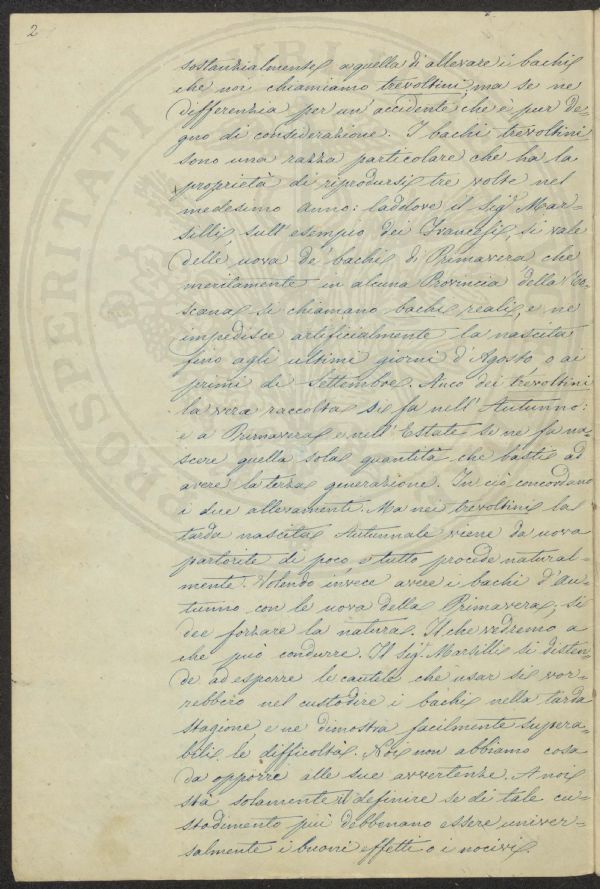 2
sostanzialmente a quella di allevare i bachi
che noi chiamiamo trevoltini, ma se ne
differenzia per un' accidente che è pur de=
gno di considerazione. I bachi trevoltini
sono una razza particolare che ha la
proprietà di riprodursi tre volte nel
medesimo anno: laddove il Sigr Mar=
silli, sull' esempio dei Francesi, si vale
delle uova de' bachi di Primavera che
meritamente in alcuna Provincia della To=
scana si chiamano bachi reali, e ne
impedisce artificialmente la nascita
fino agli ultimi giorni d'Agosto o ai
primi di Settembre. Anco dei trevoltini
la vera raccolta si fa nell' Autunno:
e a Primavera e nell' Estate se ne fa na=
scere quella sola quantità che basti ad
avere la terza generazione. In ciò concordano
i due allevamenti. Ma nei trevoltini la
tarda nascita Autunnale viene da uova
partorite di poco e tutto procede natural=
mente. Volendo invece avere i bachi d'Au=
tunno con le uova della Primavera, si
dee forzare la natura. Il che vedremo a
che può condurre. Il Sigr Marsilli si disten=
de ad esporre le cautele che usar si vor=
rebbero nel custodire i bachi nella tarda
stagione e ne dimostra facilmente supera=
bili le difficoltà. Noi non abbiamo cosa
da opporre alle sue avvertenze. A noi
stà solamente il definire se di tale cu=
stodimento più debbano essere univer=
salmente i buoni effetti o i nocivi.
PROSPERITATI PUBLICAE